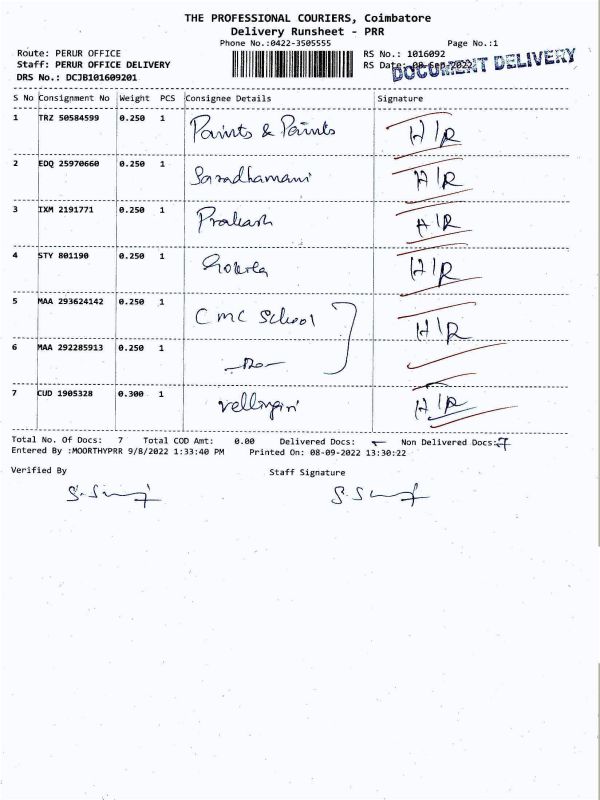 THE PROFESSIONAL COURIERS, Coimbatore
Delivery Runsheet - PRR
Phone No.:0422-3505555
Page No.:1
Route: PERUR OFFICE
RS No.: 1016092
Staff: PERUR OFFICE DELIVERY
RS Date: 08-Sep-2022
DOCUMENT DELIVERY
DRS No.: DCJB101609201
S No Consignment No Weight PCS Consignee Details Signature
1 TRZ 50584599 0.250 1 Paints & Paints H/R
2 EDQ 25970660 0.250 1 Saradhamani H/R
3 IXM 2191771 0.250 1 Prakash H/R
4 STY 801190 0.250 1 H/R
5 MAA 293624142 0.250 1 CMC School H/R
6 MAA 292285913 0.250 1 -Do-
7 CUD 1905328 0.300 1 H/R
Total No. Of Docs: 7 Total COD Amt: 0.00 Delivered Docs: - Non Delivered Docs: 7
Entered By :MOORTHYPRR 9/8/2022 1:33:40 PM Printed On: 08-09-2022 13:30:22
Verified By Staff Signature